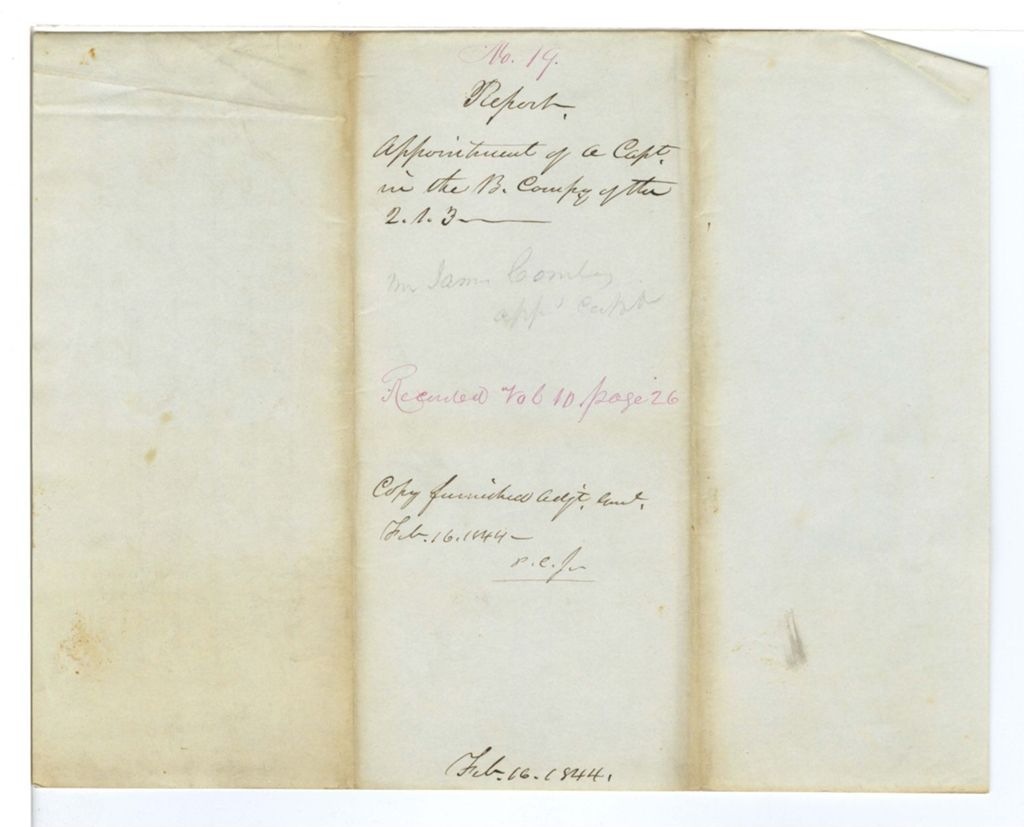 No. 19.
Report.
Appointment of a Capt.
in the B. Compy of the
2. 1. 3-
Mr James
app'
Recorded Vol 10 page 26
Copy furnished Adjt.
Feb. 16. 1844-
Feb. 16. 1844.